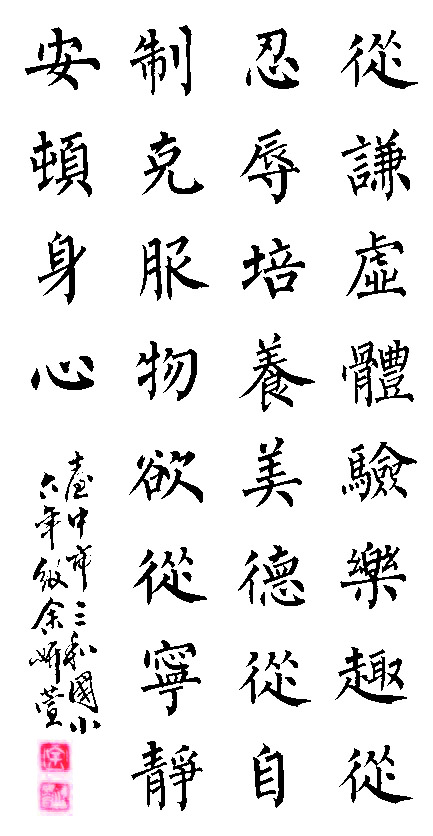 從謙虛體驗樂趣從
忍辱培養美德從自
制克服物欲從寧靜
安頓身心
臺中市三和國小
六年級余妍萱